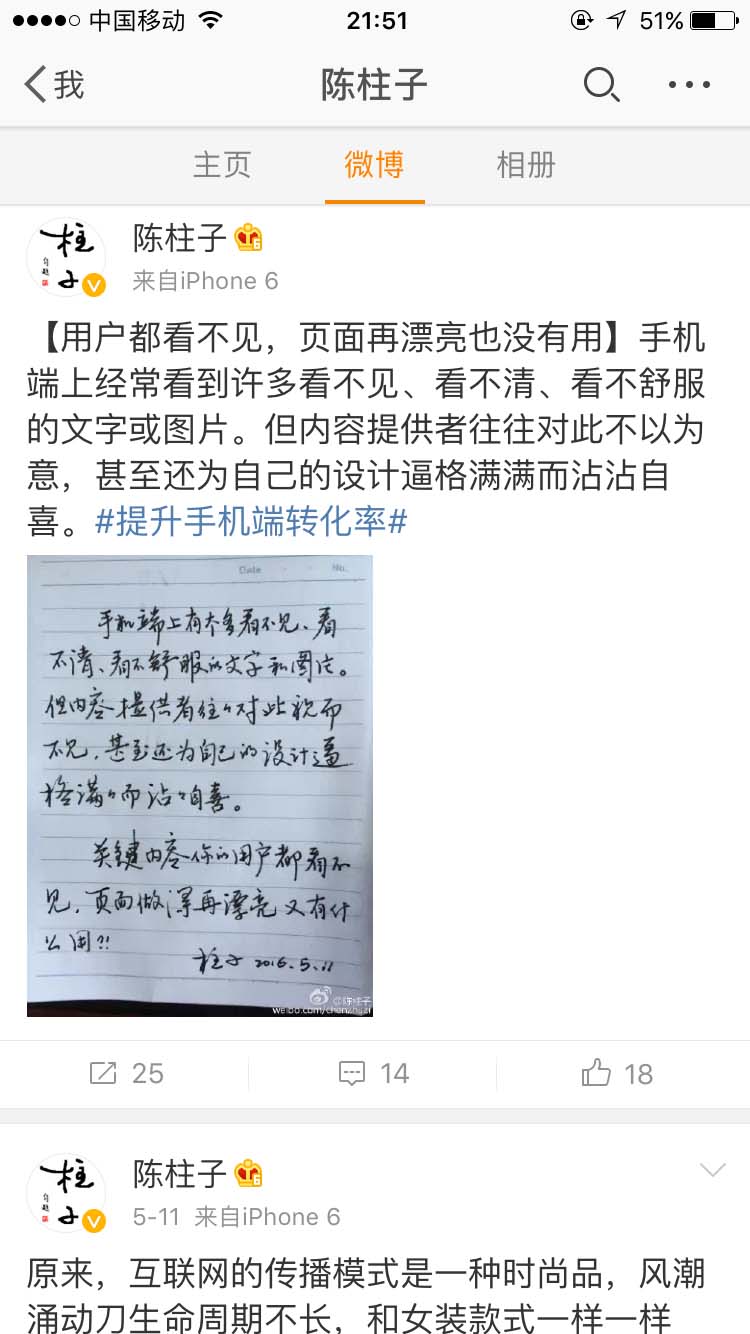 中国移动 21:51 51%
我 陈柱子
主页 微博 相册
陈柱子
来自iPhone 6
【用户都看不见，页面再漂亮也没有用】手机
端上经常看到许多看不见、看不清、看不舒服
的文字或图片。但内容提供者往往对此不以为
意，甚至还为自己的设计逼格满满而沾沾自
喜。#提升手机端转化率#
Date No.
手机端上有太多看不见、看
不清、看不舒服的文字和图片。
但内容提供者往往对此视而
不见，甚至还为自己的设计逼
格满满而沾沾自喜。
关键内容你的用户都看不
见，页面做得再漂亮又有什
么用？！
柱子 2016.5.11
@陈柱子
weibo.com/chenzhuzi
25 14 18
陈柱子
5-11 来自iPhone 6
原来，互联网的传播模式是一种时尚品，风潮
涌动刀生命周期不长，和女装款式一样一样